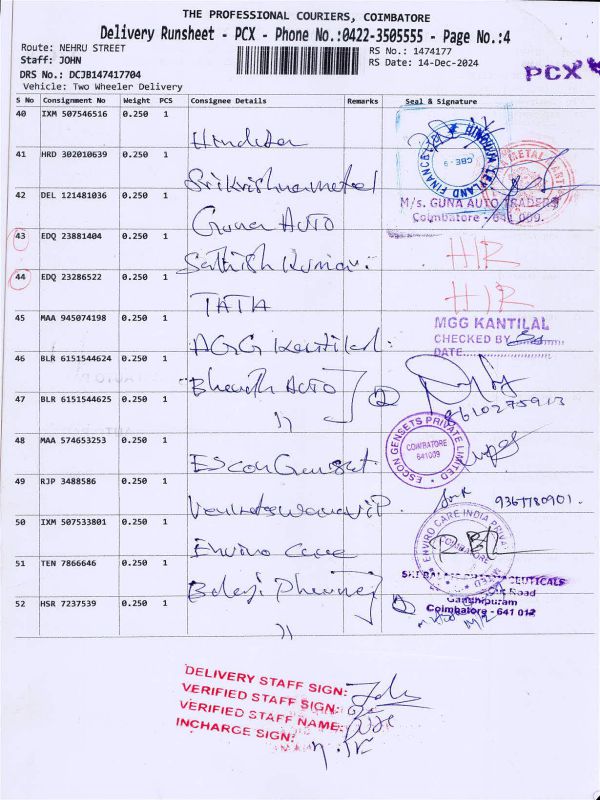 THE PROFESSIONAL COURIERS, COIMBATORE
Delivery Runsheet - PCX - Phone No.:0422-3505555 - Page No.:4
Route: NEHRU STREET
RS No.: 1474177
Staff: JOHN
RS Date: 14-Dec-2024
PCX
DRS No.: DCJB147417704
Vehicle: Two Wheeler Delivery
S No Consignment No Weight PCS Consignee Details Remarks Seal & Signature
40 IXM 507546516 0.250 1
HINDUJA LEYLAND FINANCE LTD
CBE-9
41 HRD 302010639 0.250 1
Srikrishnametal
METAL MART
42 DEL 121481036 0.250 1
Guna AUTO
M/s. GUNA AUTO TRADERS
Coimbatore - 641 009.
43 EDQ 23881404 0.250 1
Sathish Kumar.
H/R
44 EDQ 23286522 0.250 1
TATA
H/R
45 MAA 945074198 0.250 1
MGG KANTILAL
CHECKED BY
DATE
46 BLR 6151544624 0.250 1
Bharath AUTO
②
47 BLR 6151544625 0.250 1
11
8610275913
48 MAA 574653253 0.250 1
Escon Genset
ESCON GENSETS PRIVATE LIMITED
COIMBATORE
641009
49 RJP 3488586 0.250 1
9367780901.
50 IXM 507533801 0.250 1
Enviro Care
ENVIRO CARE INDIA PRIVATE
COIMBATORE
51 TEN 7866646 0.250 1
Balaji Pharma
52 HSR 7237539 0.250 1
11
Road
Gandhipuram
Coimbatore - 641 012
DELIVERY STAFF SIGN:
VERIFIED STAFF SIGN:
VERIFIED STAFF NAME:
INCHARGE SIGN: